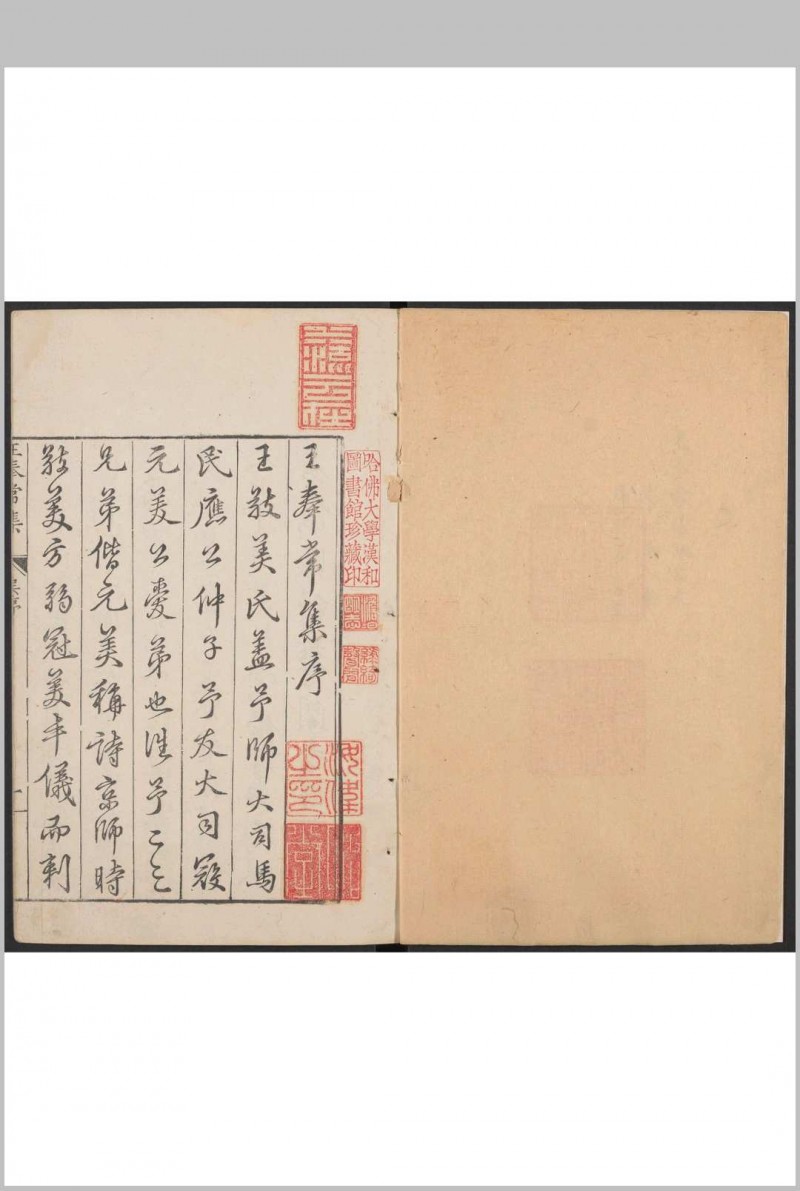 王奉常集序
王敬美氏蓋予師大司馬
民應公仲子予友大司寇
元美公愛弟也往予二三
兄弟偕元美稱詩京師時
敬美方弱冠美丰儀而刺
王奉常集
吳序
一
哈佛大學漢和
圖書館珍藏印